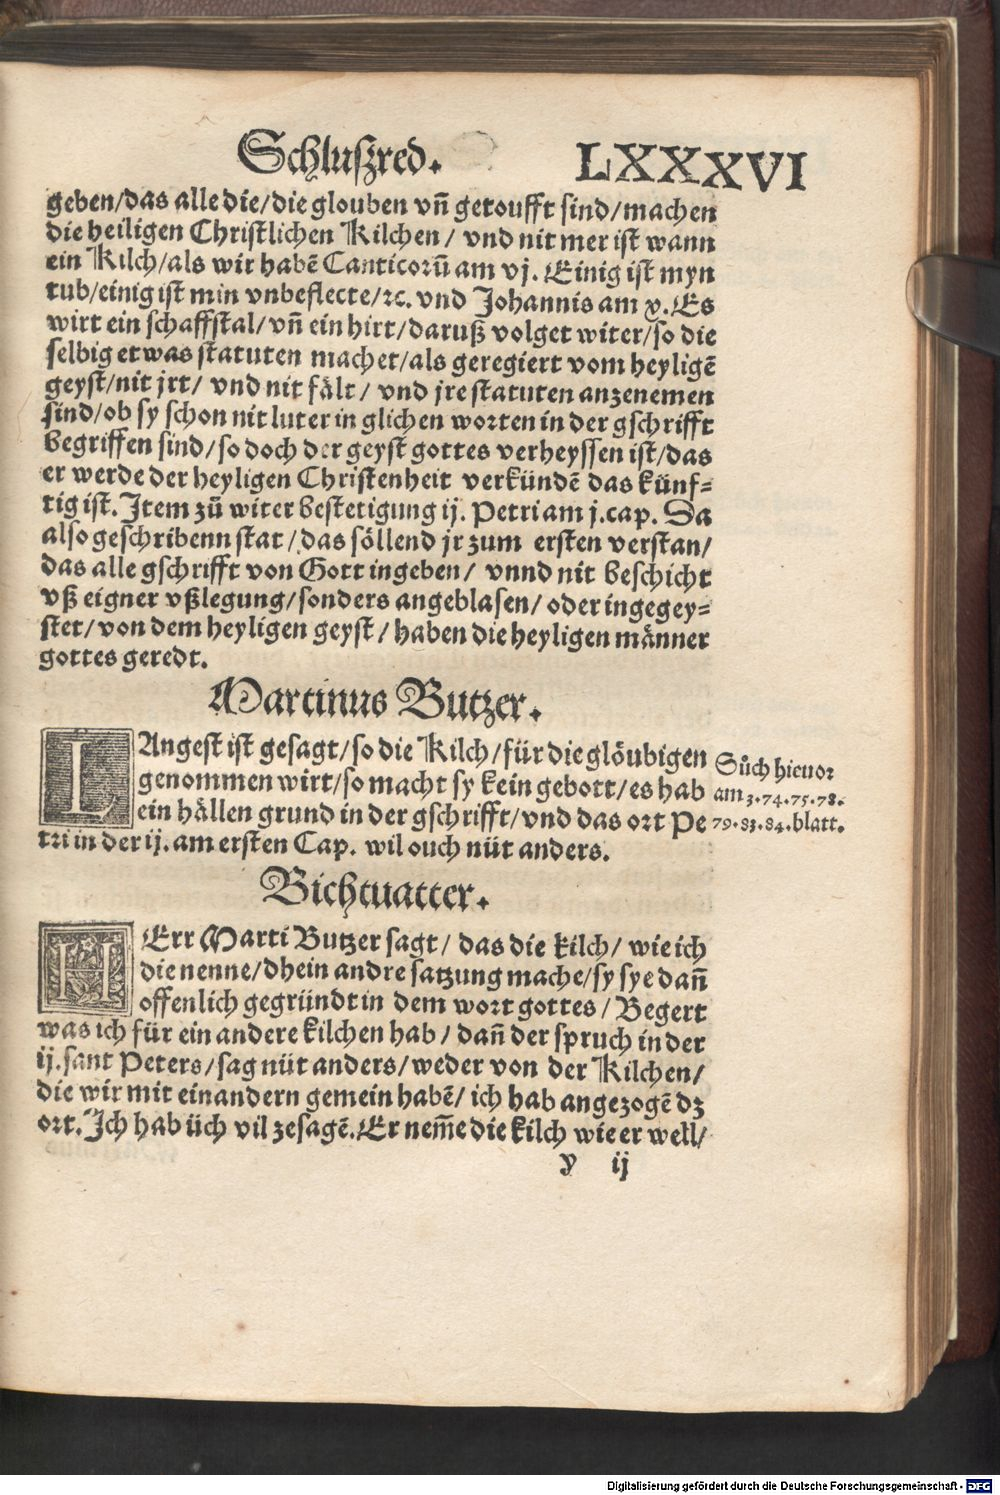 Schluſzred. LXXXVI
geben/das alle die/die glouben vñ getoufft sind/machen
die heiligen Christlichen Kilchen/ vnd nit mer ist wann
ein Kilch/als wir habẽ Canticorũ am vj. Einig ist myn
tub/einig ist min vnbeflecte/ꝛc. vnd Johannis am x. Es
wirt ein schaffstal/vñ ein hirt/daruß volget witer/so die
selbig etwas statuten machet/als geregiert vom heyligẽ
geyst/nit jrt/ vnd nit fält/ vnd jre statuten anzenemen
sind/ob sy schon nit luter in glichen worten in der gschrifft
begriffen sind/so doch der geyst gottes verheyssen ist/das
er werde der heyligen Christenheit verkündẽ das künf⸗
tig ist. Item zů witer bestetigung ij. Petri am j.cap. Da
also geschribenn stat/das söllend jr zum ersten verstan/
das alle gschrifft von Gott ingeben/ vnnd nit beschicht
vß eigner vßlegung/sonders angeblasen/ oder ingegey⸗
stet/von dem heyligen geyst/haben die heyligen männer
gottes geredt.
Martinus Butzer.
LAngest ist gesagt/so die Kilch/für die glöubigen
genommen wirt/so macht sy kein gebott/es hab
ein hällen grund in der gschrifft/vnd das ort Pe
tri in der ij. am ersten Cap. wil ouch nüt anders.
Sůch hieuor
am 3.74.75.78.
79.83.84.blatt.
Bichtuatter.
HErr Marti Butzer sagt/ das die kilch/ wie ich
die nenne/dhein andre satzung mache/sy sye dañ
offenlich gegründt in dem wort gottes/ Begert
was ich für ein andere kilchen hab/ dañ der spruch in der
ij.sant Peters/sag nüt anders/weder von der Kilchen/
die wir mit einandern gemein habẽ/ ich hab angezogẽ dz
ort. Ich hab üch vil zesagẽ. Er nem̃e die kilch wie er well/
y ij
Digitalisierung gefördert durch die Deutsche Forschungsgemeinschaft - DFG